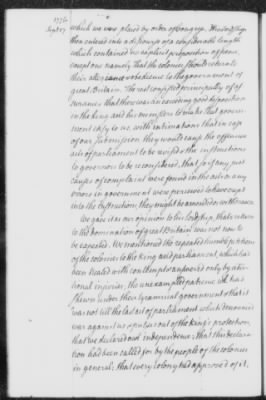 1776
Sept 17
which we were placed by order of Congress. His lordship
then entered into a discourse of a considerable length
which contained no explicit proposition of peace
except one, namely, that the colonies should return to
their allegiance & obedience to the government of
great Britain. The rest consisted principally of as-
surances that there was an exceeding good disposition
in the king and his ministers to make that govern-
ment easy to us with intimations that in case
of our submission they would cause the offensive
acts of parliament to be revised & the instructions
to governors to be reconsidered, that so if any just
causes of complaint were found in the acts or any
errors in government were perceived to have crept
into the instructions, they might be amended or withdrawn.
We gave it as our opinion to his lordship, that a return
to the domination of great Britain was not now to
be expected. We mentioned the repeated humble petitions
of the colonies to the king and parliament, which had
been treated with contempt & answered only by addi-
tional injuries; the unexampled patience we had
shewn under their tyrannical government & that it
was not till the last act of parliament which denounced
war against us & put us out of the king's protection,
that we declared our independence; that this declara-
tion had been called for by the people of the colonies
in general; that every colony had approved of it,